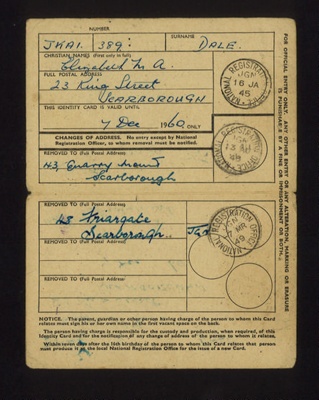 NUMBER
SURNAME
JKAI. 389:
DALE.
CHRISTIAN NAMES (First only in full)
Elizabeth M. A.
FULL POSTAL ADDRESS
23 King Street
SCARBOROUGH
THIS IDENTITY CARD IS VALID UNTIL
7 Dec 1960 ONLY
CHANGES OF ADDRESS. No entry except by National
Registration Officer, to whom removal must be notified.
REMOVED TO (Full Postal Address)
43, Quarry Mount
Scarborough
REMOVED TO (Full Postal Address)
48 Friargate
Scarborough
REMOVED TO (Full Postal Address)
REMOVED TO (Full Postal Address)
NATIONAL REGISTRATION
16 JA
45
NATIONAL REGISTRATION OFFICE
7 MR
49
FOR OFFICIAL ENTRY ONLY. ANY OTHER ENTRY OR ANY ALTERATION, MARKING OR ERASURE
IS PUNISHABLE BY A FINE OR IMPRISONMENT OR BOTH.
NOTICE.—The parent, guardian or other person having charge of the person to whom this Card
relates must sign his or her own name in the first vacant space on the back.
The person having charge is responsible for the custody and production, when required, of this
Identity Card and for the notification of any change of address of the person to whom it relates.
Within seven days after the 16th birthday of the person to whom this Card relates that person
must produce it at the local National Registration Office for the issue of a new Card.